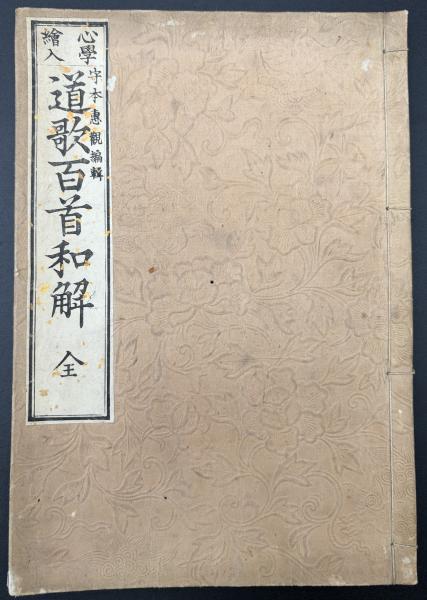 心學
繪入
宇本惠觀編輯
道歌百首和解 全